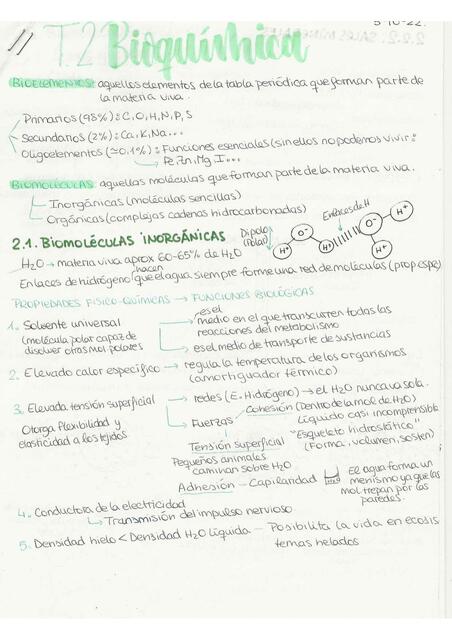 5-10-22.
T.2 Bioquímica
BIOELEMENTOS: aquellos elementos de la tabla periódica que forman parte de
la materia viva.
Primarios (98%): C, O, H, N, P, S
Secundarios (2%): Ca, K, Na...
Oligoelementos (≈0,1%): Funciones esenciales (sin ellos no podemos vivir:
Fe, Zn, Mg, I...
BIOMOLÉCULAS: aquellas moléculas que forman parte de la materia viva.
Inorgánicas (moléculas sencillas)
Orgánicas (complejas cadenas hidrocarbonadas)
2.1. BIOMOLÉCULAS INORGÁNICAS
Dipolo
(Polar)
Enlaces de H
O⁻ H⁺ H⁺ O⁻ H⁺ H⁺
H₂O → materia viva aprox 60-65% de H₂O
hacen
Enlaces de hidrógeno que el agua siempre forme una red de moléculas (prop espe)
PROPIEDADES FISICO-QUÍMICAS → FUNCIONES BIOLÓGICAS
1. Solvente universal
(molécula polar capaz de
disolver otras mol polares
es el
medio en el que transcurren todas las
reacciones del metabolismo
es el medio de transporte de sustancias
2. Elevado calor específico → regula la temperatura de los organismos
(amortiguador térmico)
3. Elevada tensión superficial
Otorga flexibilidad y
elasticidad a los tejidos
redes (E. Hidrógeno) → el H₂O nunca va sola.
Fuerzas
Cohesión (Dentro de la mol de H₂O)
Líquido casi incomprensible
"Esqueleto hidrostático"
(Forma, volumen, sosten)
Tensión superficial
Pequeños animales
caminan sobre H₂O
Adhesión - Capilaridad
El agua forma un
menismo ya que las
mol trepan por las
paredes.
4. Conductora de la electricidad
Transmisión del impulso nervioso
5. Densidad hielo < Densidad H₂O líquida - Posibilita la vida en ecosis
temas helados